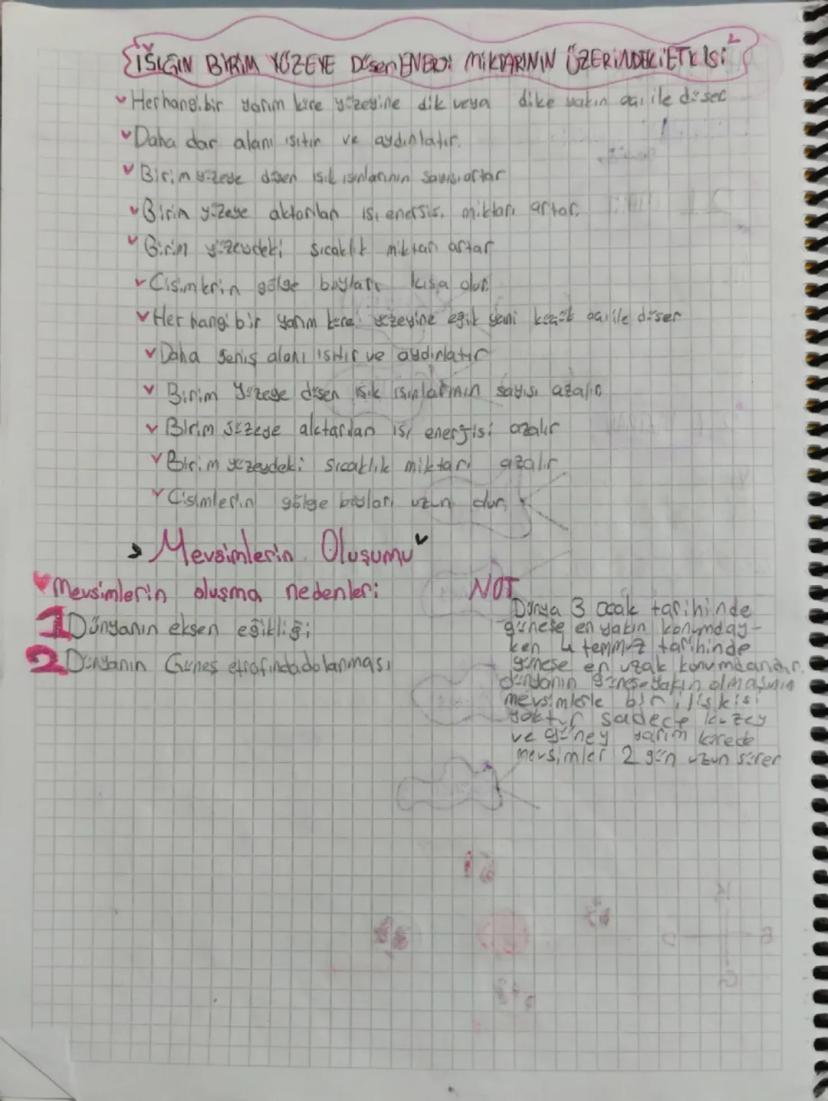 IŞIĞIN BİRİM YÜZEYE Düşen ENERJİ MİKTARININ ÜZERİNDEKİ ETKİSİ
Herhangi bir yarım küre yüzeyine dik veya dike yakın açı ile düşer
Daha dar alanı ısıtır ve aydınlatır.
Birim yüzeye düşen ışık ışınlarının sayısı artar
Birim yüzeye aktarılan ısı enerjisi miktarı artar.
Birim yüzeydeki sıcaklık miktarı artar
Cisimlerin gölge boyları kısa olur
Her hangi bir yarım küre yüzeyine eğik yani küçük açı ile düşer
Daha geniş alanı ısıtır ve aydınlatır
Birim yüzeye düşen ışık ışınlarının sayısı azalır
Birim yüzeye aktarılan ısı enerjisi azalır
Birim yüzeydeki sıcaklık miktarı azalır
Cisimlerin gölge boyları uzun olur
Mevsimlerin Oluşumu
Mevsimlerin oluşma nedenleri
1 Dünyanın eksen eğikliği
2 Dünyanın Güneş etrafında dolanması
NOT
Dünya 3 ocak tarihinde
güneşe en yakın konumday-
ken 4 temmuz tarihinde
güneşe en uzak konumdandır.
dünyanın güneşe yakın olmasının
mevsimlerle bir ilişkisi
yoktur sadece kuzey
ve güney yarım kürede
mevsimler 2 gün uzun sürer